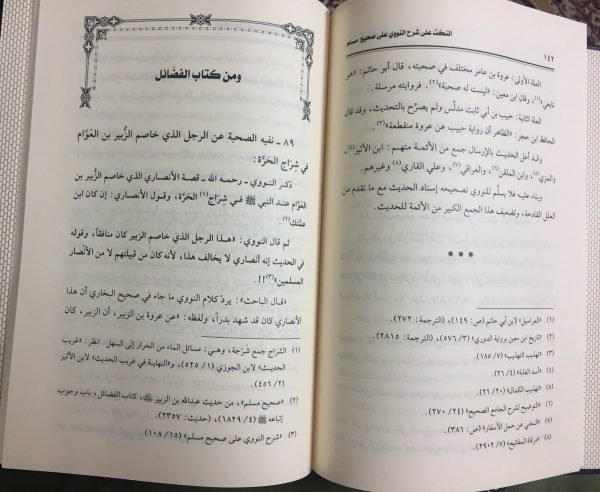 النكت على شرح النووي على صحيح مسلم
١٤٢
العلة الأولى: عروة بن عامر مختلف في صحبته، قال أبو حاتم: «هو
تابعي»(١)، وقال ابن معين: «ليست له صحبة»(٢). فروايته مرسلة.
العلة الثانية: حبيب بن أبي ثابت مدلّس ولم يصرّح بالتحديث، وقد قال
الحافظ ابن حجر: «الظاهر أن رواية حبيب عن عروة منقطعة»(٣).
وقد أعل الحديث بالإرسال جمع من الأئمة منهم: ابن الأثير(٤)،
والمزي(٥)، وابن الملقن(٦)، والعراقي(٧)، وعلي القاري(٨) وغيرهم.
وبناء عليه فلا يسلّم للنووي تصحيحه إسناد الحديث مع ما تقدم من
العلل القادحة، وتضعيف هذا الجمع الكبير من الأئمة للحديث.
* * *
(١) «المراسيل» لابن أبي حاتم (ص: ١٤٩)، (الترجمة: ٢٧٢).
(٢) «تاريخ ابن معين برواية الدوري» (٣/ ٥٧٦)، (الترجمة: ٢٨١٥).
(٣) «تهذيب التهذيب» (٧/ ١٨٥).
(٤) «أسد الغابة» (٤/ ٢٦).
(٥) «تهذيب الكمال» (٢٠/ ٢٦).
(٦) «التوضيح لشرح الجامع الصحيح» (٢٤/ ٢٧٠).
(٧) «المغني عن حمل الأسفار» (ص: ٣٨٦).
(٨) «مرقاة المفاتيح» (٧/ ٢٩٠٢).
ومن كتاب الفضائل
٨٩ ـ نفيه الصحبة عن الرجل الذي خاصم الزُّبير بن العَوَّام
في شِرَاج الحَرَّة:
ذكر النووي ـ رحمه الله ـ قصة الأنصاري الذي خاصم الزُّبير بن
العَوَّام عند النبي ﷺ في شِرَاج(١) الحَرَّة، وقول الأنصاري: إن كان ابن
عمّتك(٢).
ثم قال النووي: «هذا الرجل الذي خاصم الزبير كان منافقاً، وقوله
في الحديث إنه أنصاري لا يخالف هذا، لأنه كان من قبيلتهم لا من الأنصار
المسلمين»(٣)!!.
«قال الباحث»: يردّ كلام النووي ما جاء في صحيح البخاري أن هذا
الأنصاري كان قد شهد بدراً، ولفظه: «عن عروة بن الزبير، أن الزبير، كان
(١) الشراج جمع شَرْجَة، وهي: مسائل الماء من الحرار إلى السهل. انظر: «غريب
الحديث» لابن الجوزي (١/ ٥٢٥)، و«النهاية في غريب الحديث» لابن الأثير
(٢/ ٤٥٦).
(٢) «صحيح مسلم»، من حديث عبدالله بن الزبير ﷺ، كتاب الفضائل، باب وجوب
إتباعه ﷺ (٤/ ١٨٢٩)، (حديث: ٢٣٥٧).
(٣) «شرح النووي على صحيح مسلم» (١٥/ ١٠٨).